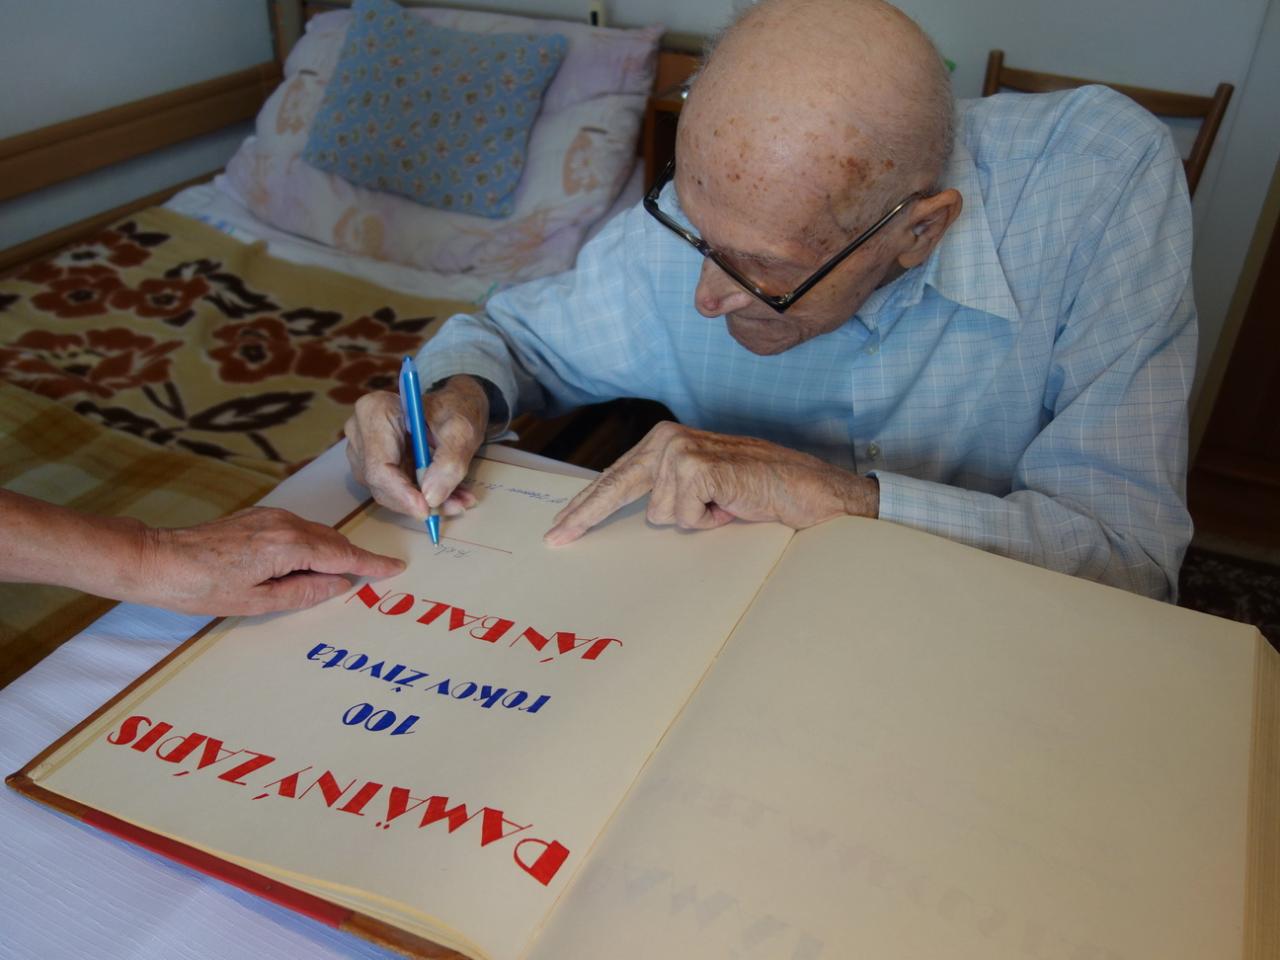 PAMÄTNÝ ZÁPIS
100
rokov života
JÁN BALON